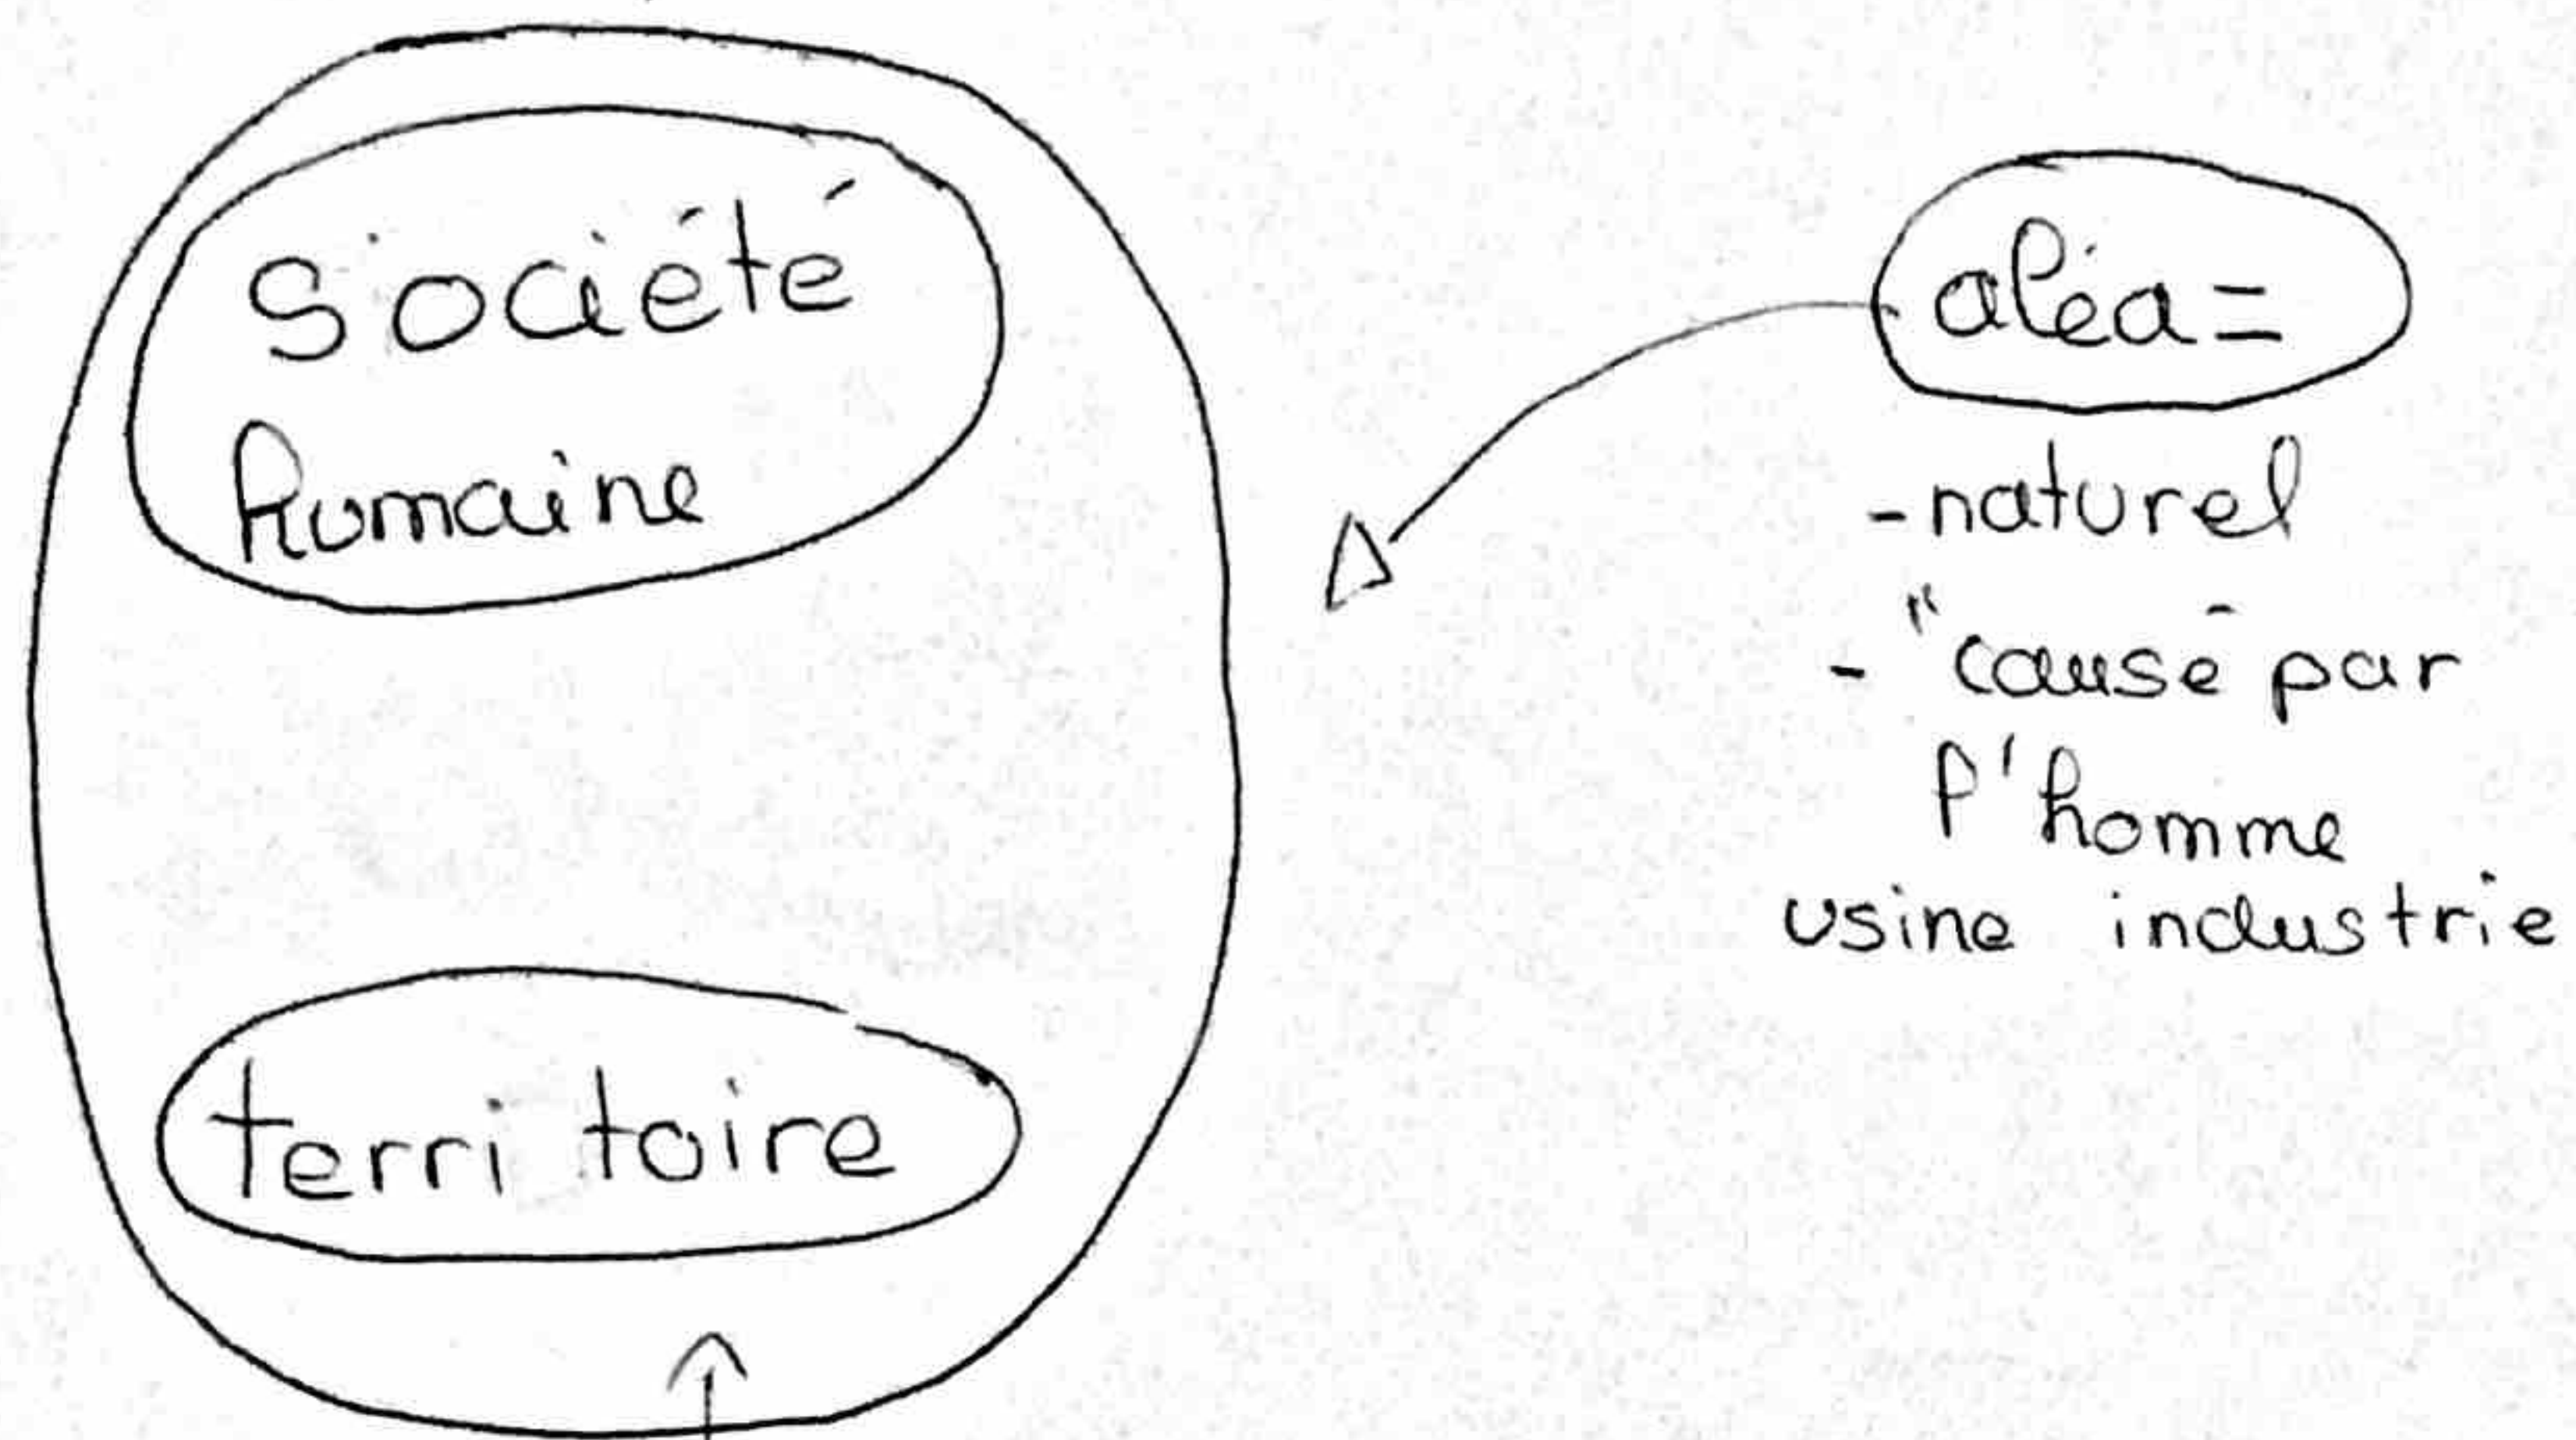 Société
humaine
territoire
aléa =
- naturel
- "causé par
l'homme
usine industrie